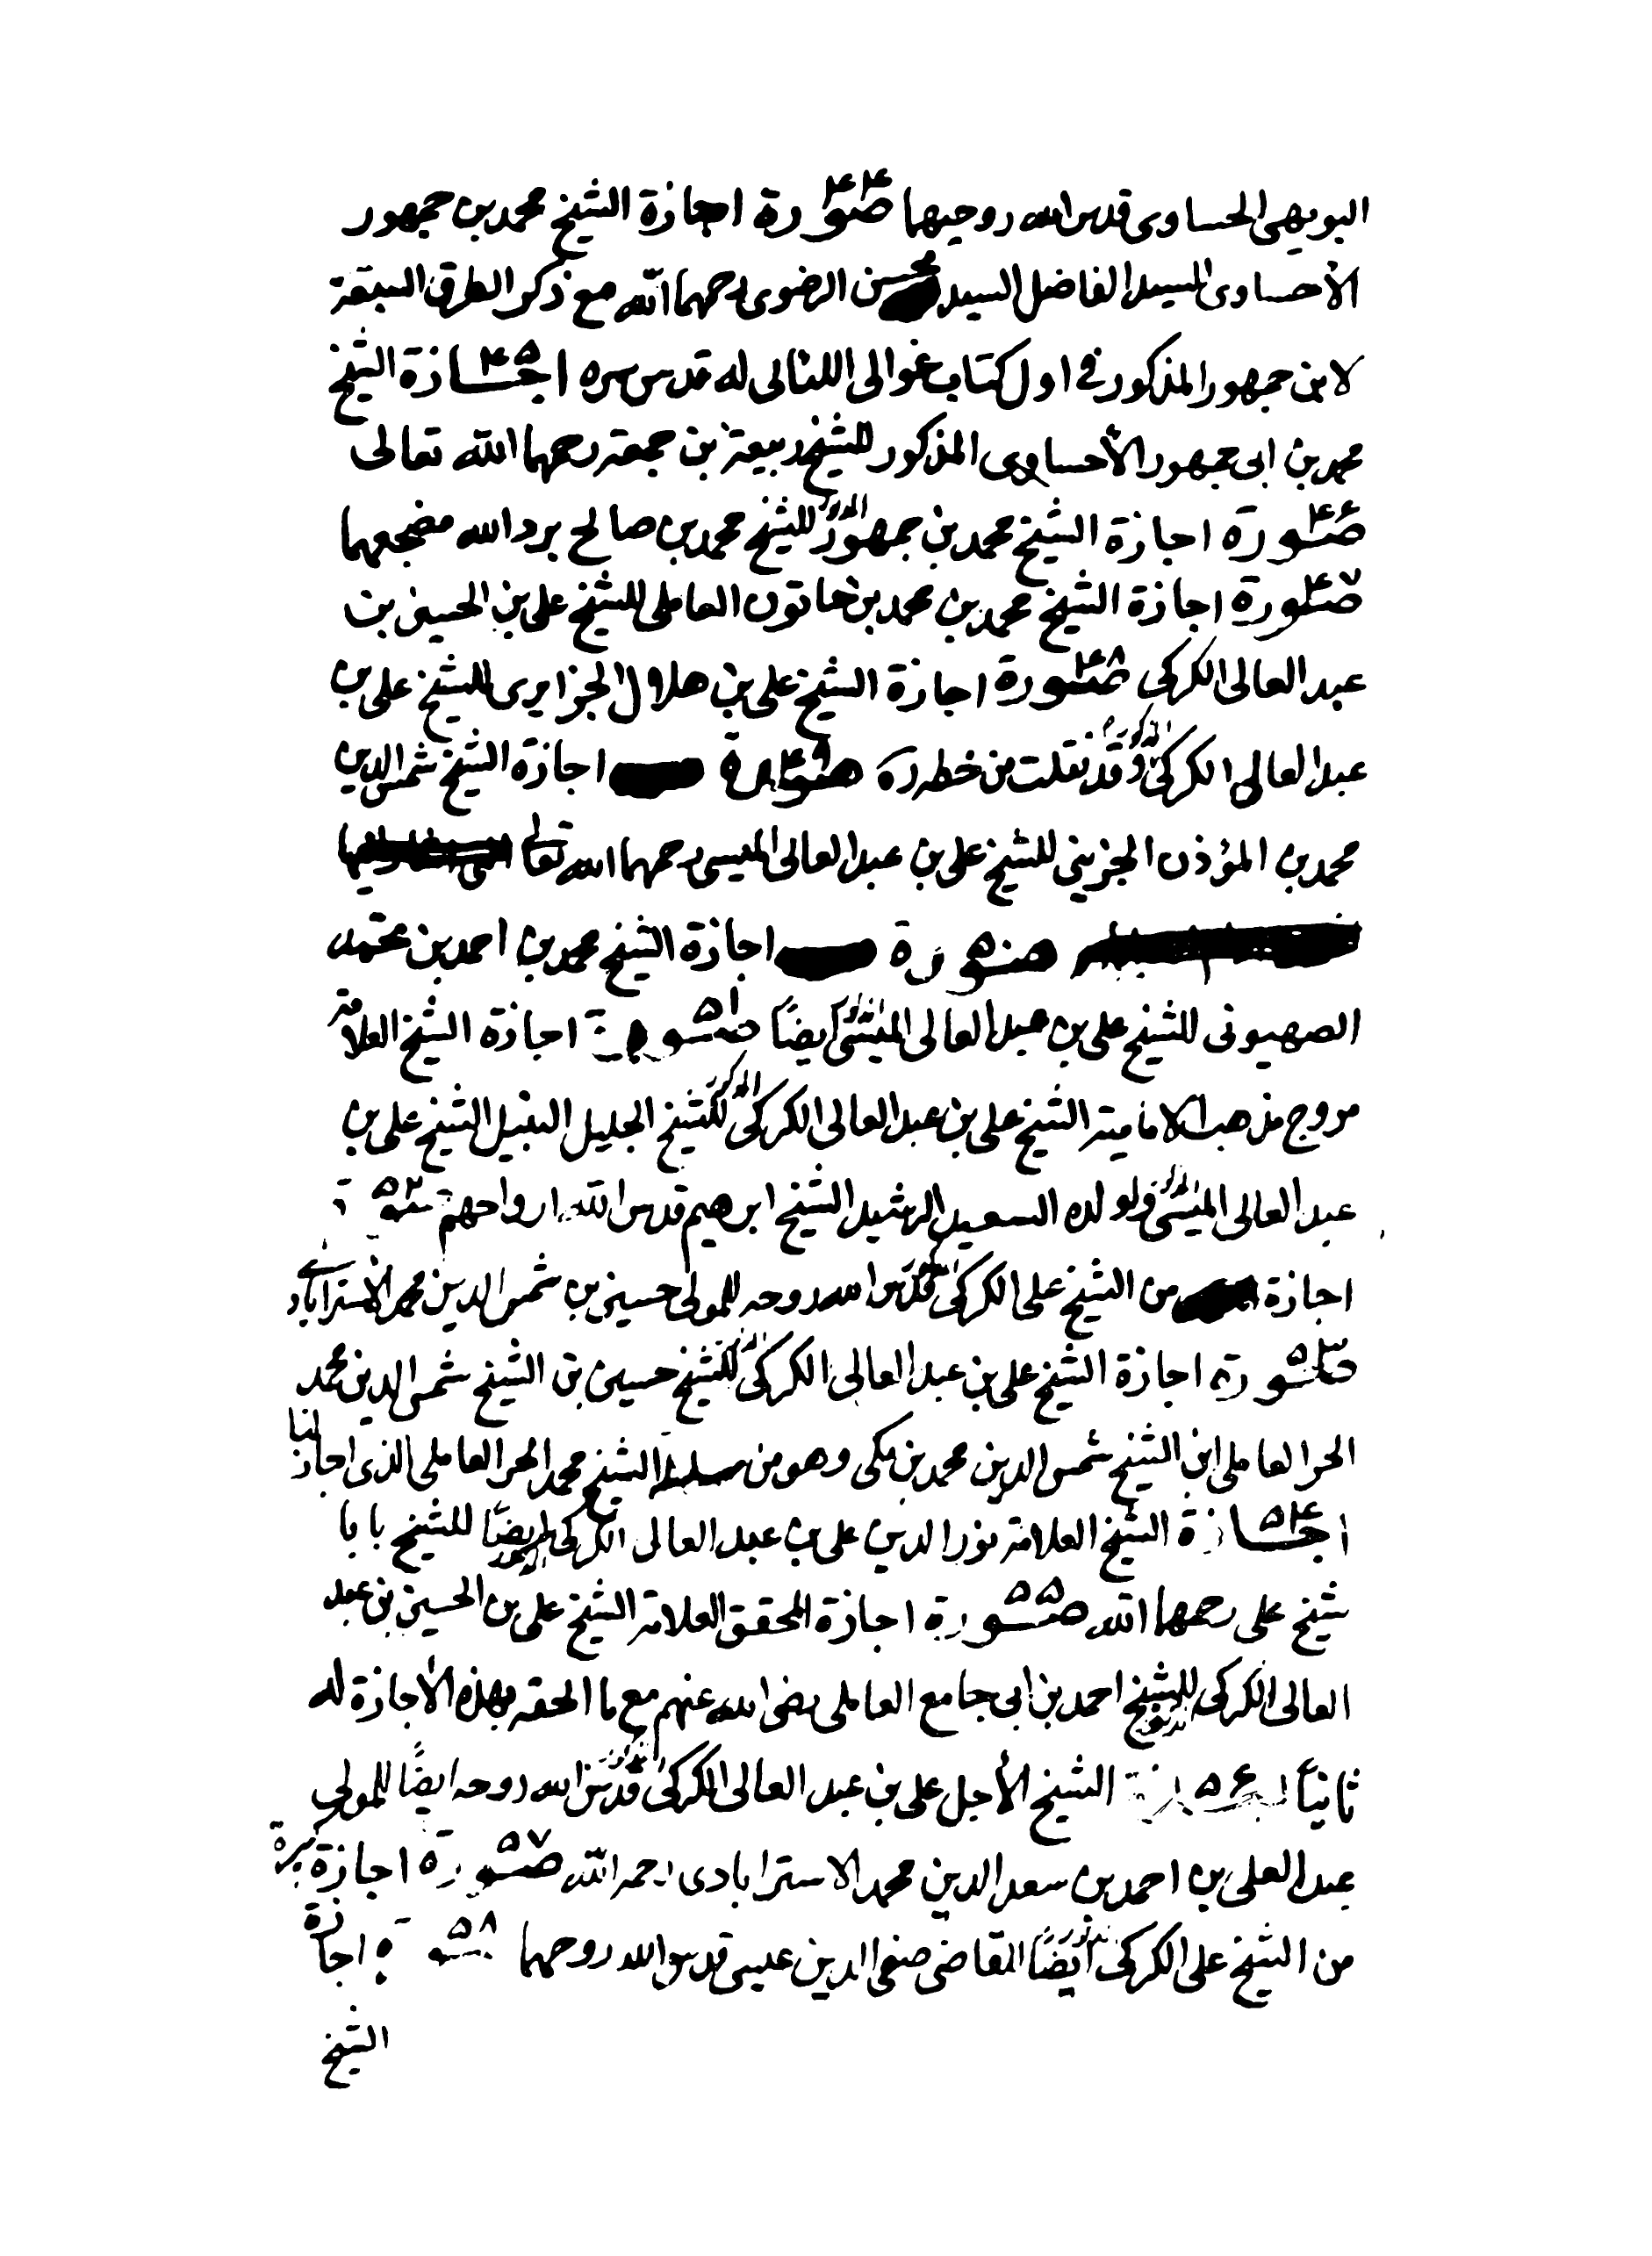 البويهي الحساوى قدس الله روحيهما صورة ۴۴ اجازة الشيخ محمد بن جمهور
الأحساوى للسيد الفاضل السيد محسن الرضوى رحمهما الله مع ذكر الطرق السبعة
لابن جمهور المذكور في اول كتاب غوالى اللئالى له قدس سره اجازة ۴۵ الشيخ
محمد بن ابى جمهور الأحساوى المذكور للشيخ ربيعة بن جمعة رحمهما الله تعالى
صورة ۴۶ اجازة الشيخ محمد بن جمهور المذكور للشيخ محمد بن صالح برد الله مضجعهما
صورة ۴۷ اجازة الشيخ محمد بن محمد بن خاتون العاملى للشيخ على بن الحسين بن
عبد العالى الكركى صورة ۴۸ اجازة الشيخ على بن هلال الجزايرى للشيخ على بن
عبد العالى الكركى المذكور وقد نقلت من خطه ره صورة ۴۹ اجازة الشيخ شمس الدين
محمد بن المؤذن الجزيني للشيخ على بن عبد العالى الميسى رحمهما الله تعالى
صورة ۵۰ اجازة الشيخ محمد بن احمد بن محمد
الصهيونى للشيخ على بن عبد العالى الميسى المذكور ايضًا صورة ۵۱ اجازة الشيخ العلامة
مروج مذهب الامامية الشيخ على بن عبد العالى الكركى المذكور للشيخ الجليل النبيل الشيخ على بن
عبد العالى الميسى المذكور ولولده السعيد الرشيد الشيخ ابرهيم قدس الله ارواحهم صورة ۵۲
اجازة من الشيخ على الكركى قدس الله روحه للمولى حسين بن شمس الدين محمد الأسترابادى
صورة ۵۳ اجازة الشيخ على بن عبد العالى الكركى المذكور للشيخ حسين بن الشيخ شمس الدين محمد
الحر العاملى ابن الشيخ شمس الدين محمد بن مكى وهو من سلسلة الشيخ محمد الحر العاملى الذى اجاز لنا
اجازة ۵۴ الشيخ العلامة نور الدين على بن عبد العالى الكركى المذكور ايضًا للشيخ بابا
شيخ على رحمهما الله صورة ۵۵ اجازة المحقق العلامة الشيخ على بن الحسين بن عبد
العالى الكركى المذكور للشيخ احمد بن ابى جامع العاملى رضى الله عنهم مع ما الحقه بهذه الأجازة له
ثانيًا اجازة ۵۶ الشيخ الأجل على بن عبد العالى الكركى المذكور قدس الله روحه ايضًا للمولى
عبد العلى بن احمد بن سعد الدين محمد الاسترابادى رحمه الله صورة ۵۷ اجازة كبيرة
من الشيخ على الكركى المذكور ايضًا للقاضى صفى الدين عيسى قدس الله روحهما صورة ۵۸ اجازة
الشيخ